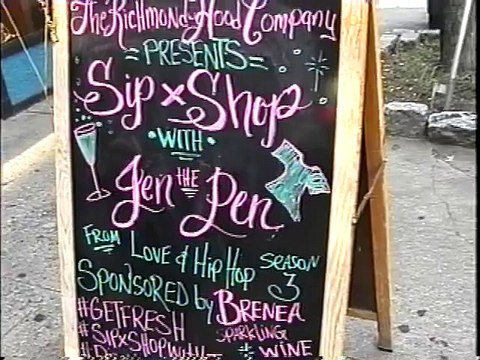 The Richmond Hood Company
= PRESENTS =
Sip x Shop
• WITH •
Jen THE Pen
FROM LOVE & HIP HOP SEASON 3
SPONSORED by BRENEA
#GETFRESH SPARKLING
WINE